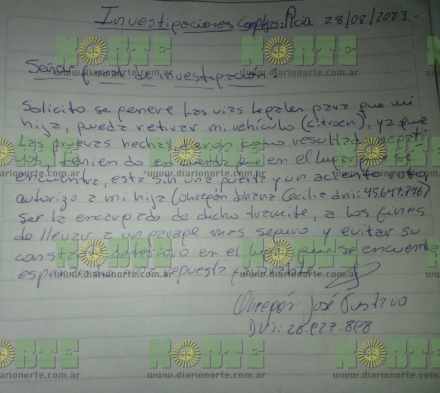 Investigaciones Complejas. Pcia 28/08/2023.-
Señor fiscal de investigación:
Solicito se genere las vias legales para que mi
hija, pueda retirar mi vehículo (citroen), ya que
las pruebas hechas dieron como resultado
teniendo en cuenta que en el lugar se
encuentra, esta sin una puerta y un
autorizo a mi hija (Obregón Johana Cecilia dni: 45.647.746)
Ser la encargada de dicho tramite, a los fines
de llevar a un garage mas seguro y evitar su
constante deterioro en el lugar que se encuentra
respuesta
Obregon José Gustavo
DNI: 28.627.898
NORTE
www.diarionorte.com.ar